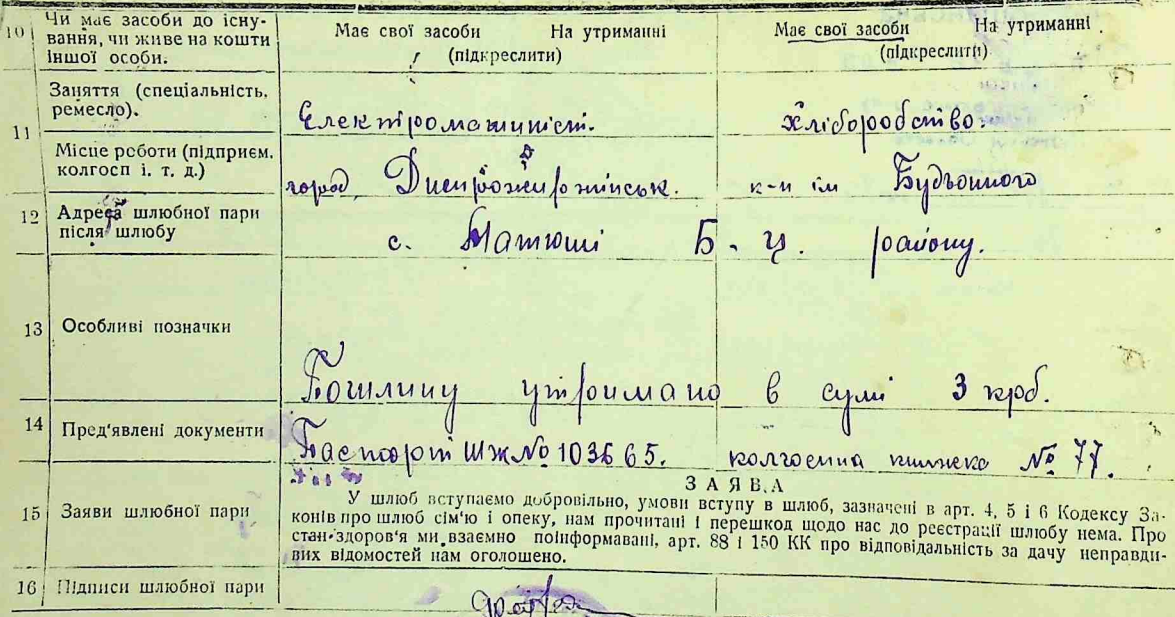 10 Чи має засоби до існу-
вання, чи живе на кошти
іншої особи.
Має свої засоби На утриманні
(підкреслити)
Має свої засоби На утриманні
(підкреслити)
11
Заняття (спеціальність,
ремесло).
Електромашиніст.
Хліборобство.
Місце роботи (підприєм.
колгосп і. т. д.)
город Днепродзержинськ.
к-п ім Будьонного
12 Адреса шлюбної пари
після шлюбу
с. Матюші Б. Ц. району.
13 Особливі позначки
Пошлину утримано в сумі 3 крб.
14 Пред'явлені документи
Паспорт ШЖ № 103665.
колгоспна книжка № 77.
15 Заяви шлюбної пари
ЗАЯВА
У шлюб вступаємо добровільно, умови вступу в шлюб, зазначені в арт. 4, 5 і 6 Кодексу За-
конів про шлюб сім'ю і опеку, нам прочитані і перешкод щодо нас до реєстрації шлюбу нема. Про
стан здоров'я ми взаємно поінформавані, арт. 88 і 150 КК про відповідальність за дачу неправди-
вих відомостей нам оголошено.
16 Підписи шлюбної пари